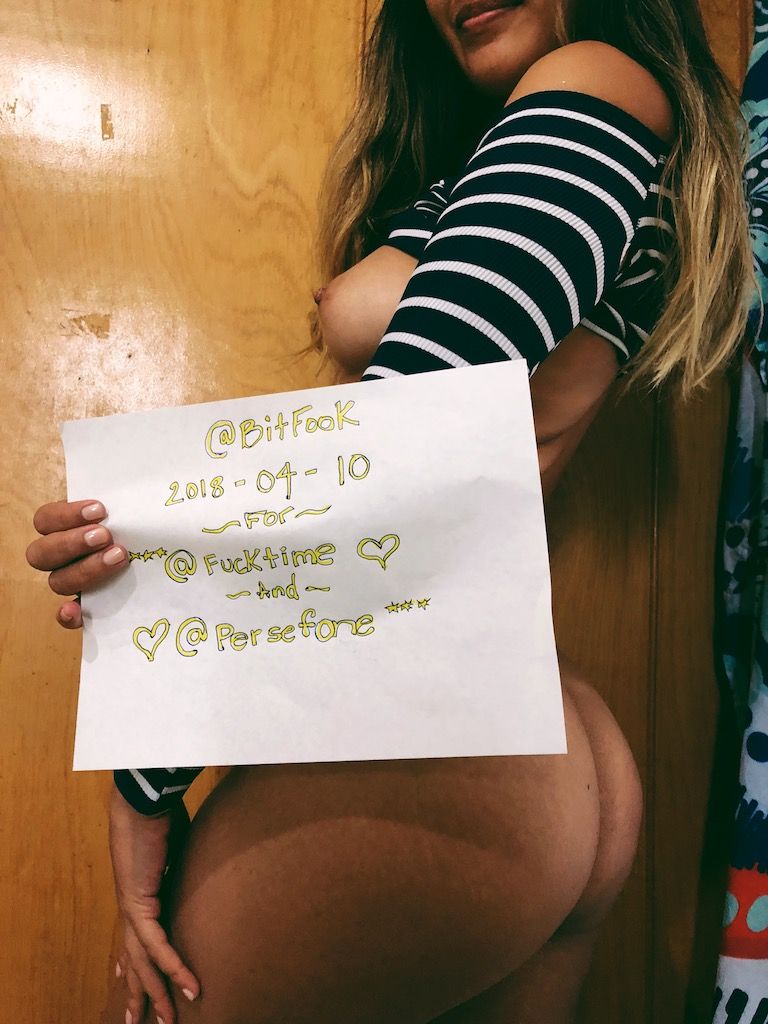 @BitFooK
2018-04-10
~For~
***@Fucktime ♡
~And~
♡@Persefone***